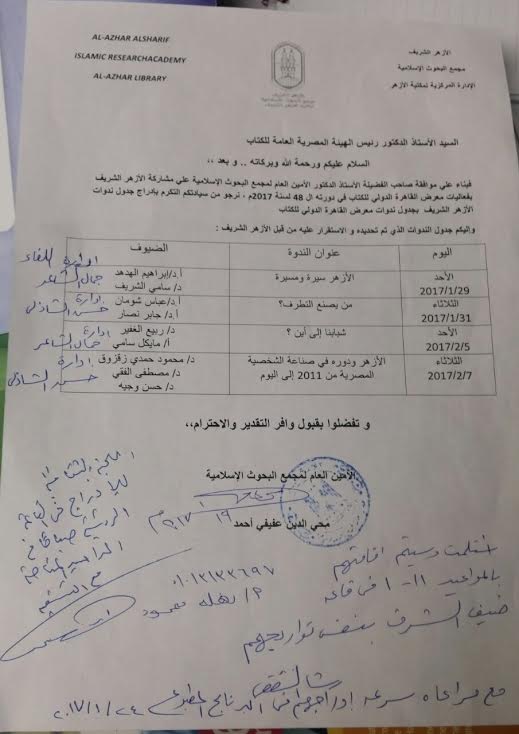 AL-AZHAR ALSHARIF
ISLAMIC RESEARCHACADEMY
AL-AZHAR LIBRARY
الأزهر الشريف
مجمع البحوث الإسلامية
الإدارة المركزية لمكتبة الأزهر
السيد الأستاذ الدكتور رئيس الهيئة المصرية العامة للكتاب
السلام عليكم ورحمة الله وبركاته .. و بعد ،،
فبناء علي موافقة صاحب الفضيلة الأستاذ الدكتور الأمين العام لمجمع البحوث الإسلامية علي مشاركة الأزهر الشريف
بفعاليات معرض القاهرة الدولي للكتاب في دورته ال 48 لسنة 2017م ، نرجو من سيادتكم التكرم بإدراج جدول ندوات
الأزهر الشريف بجدول ندوات معرض القاهرة الدولي للكتاب
وإليكم جدول الندوات الذي تم تحديده و الاستقرار عليه من قبل الأزهر الشريف :
اليوم عنوان الندوة الضيوف
الأحد 2017/1/29 الأزهر سيرة ومسيرة أ.د/إبراهيم الهدهد
د/ سامي الشريف
الثلاثاء 2017/1/31 من يصنع التطرف؟ أ.د/عباس شومان
أ.د/ جابر نصار
الأحد 2017/2/5 شبابنا إلى أين ؟ د/ ربيع الغفير
أ/ مايكل سامي
الثلاثاء 2017/2/7 الأزهر ودوره في صناعة الشخصية المصرية من 2011 إلى اليوم د/ محمود حمدي زقزوق
د/ مصطفى الفقي
د/ حسن وجيه
إدارة اللقاء
جمال الشاعر
إدارة
حسن الشاذلي
إدارة
جمال الشاعر
إدارة
حسن الشاذلي
و تفضلوا بقبول وافر التقدير والاحترام،،
الأمين العام لمجمع البحوث الإسلامية
محي الدين عفيفي أحمد
استلمت وسيتم اقامتهم
بالمواعيد
فى قاعة
ضيف الشرف بنفس تواريخهم
مع مراعاة سرعة إدراجهم فى البرنامج المطبوع ٢٠١٧/١/٢٤